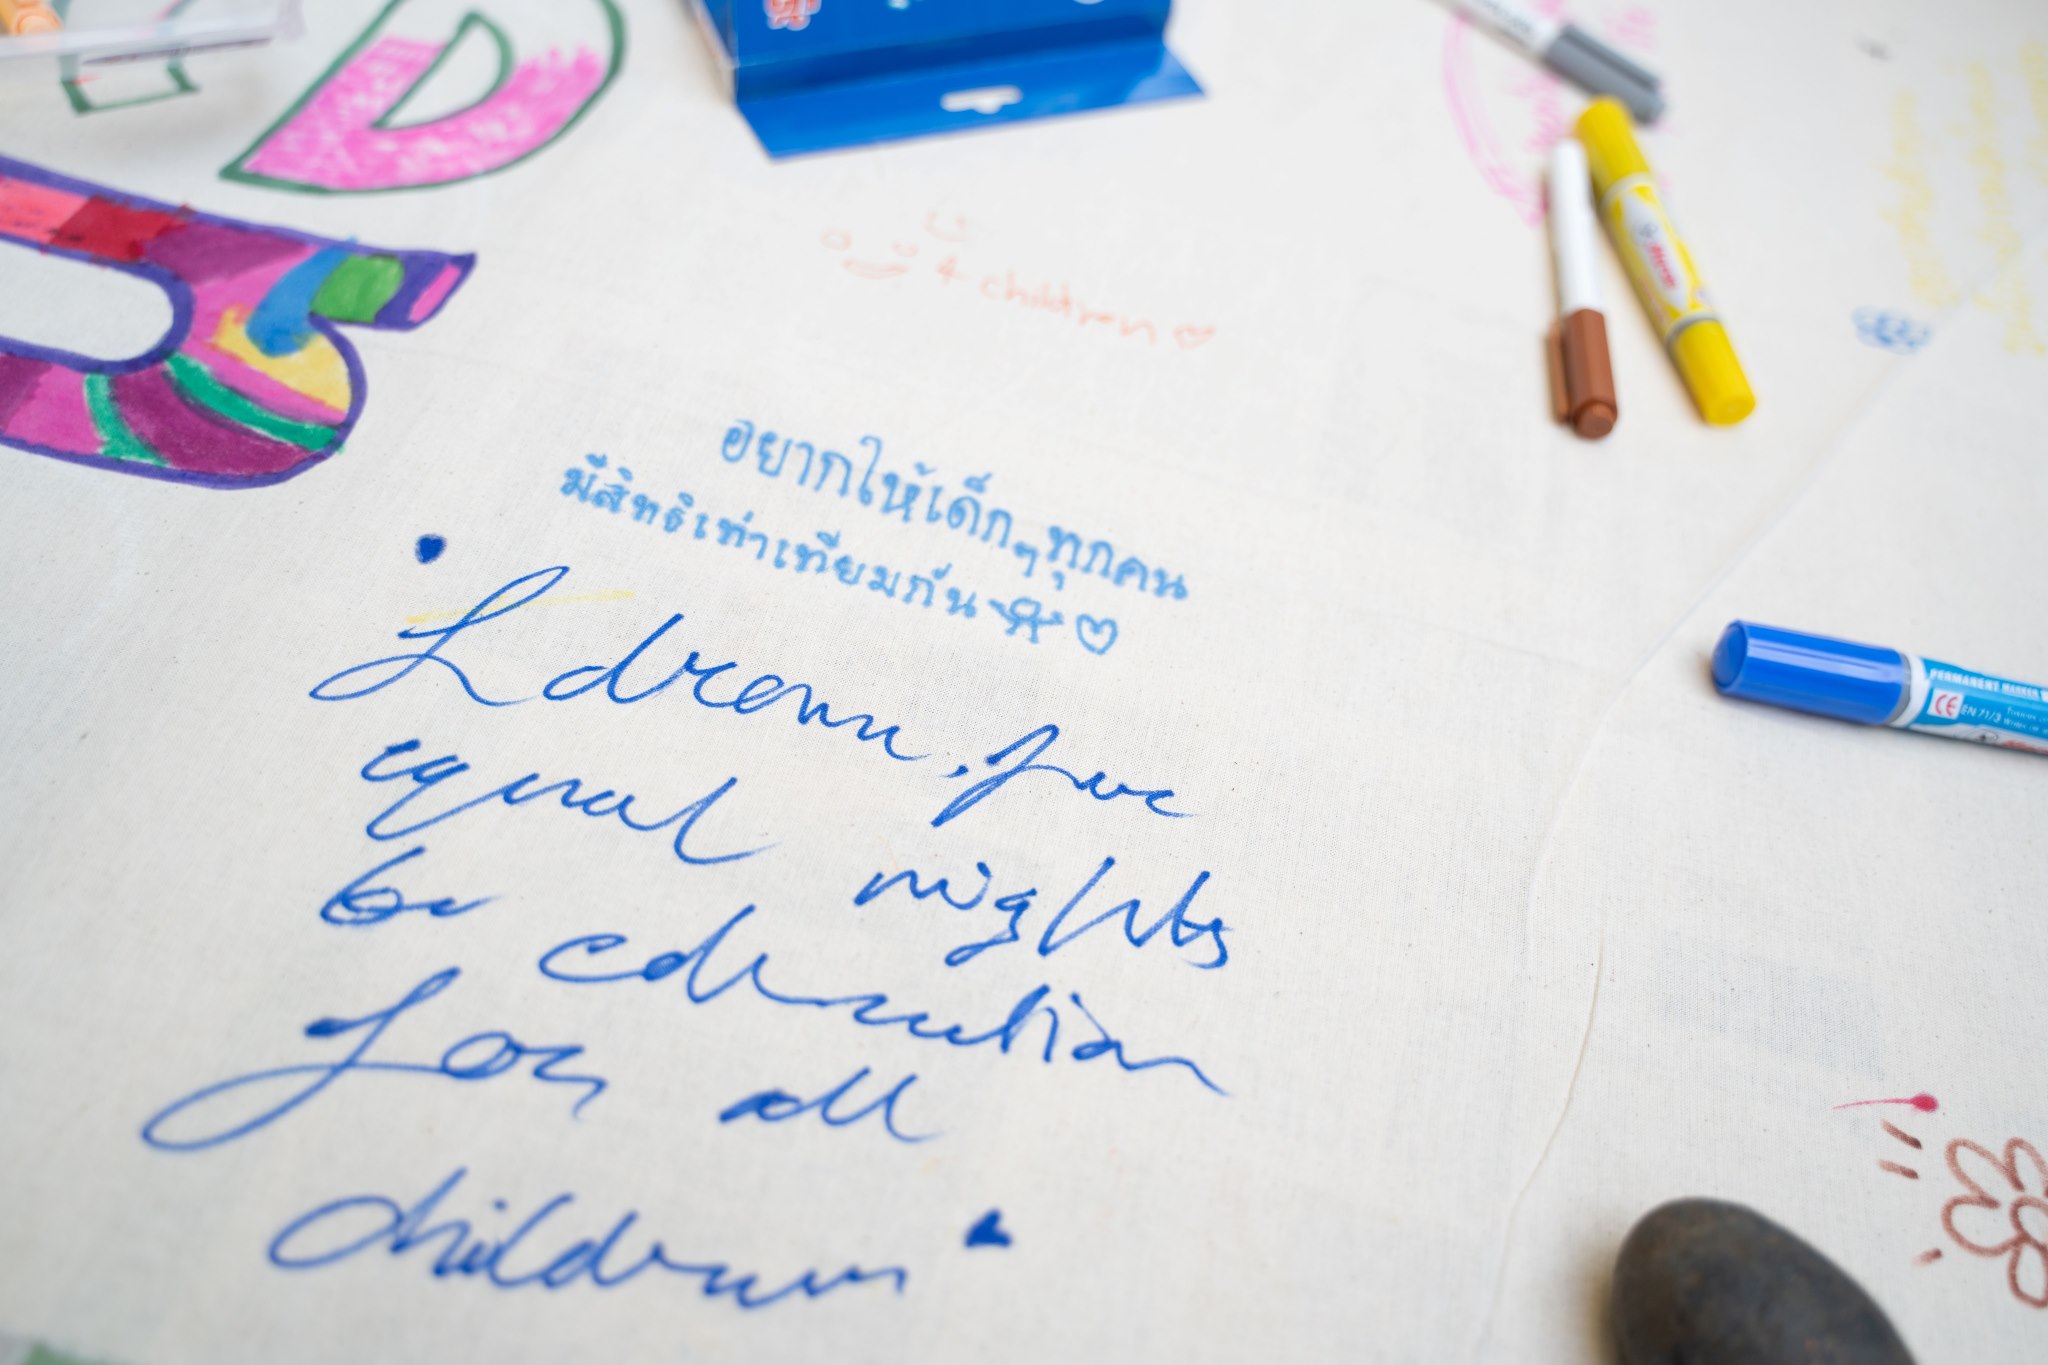 4 children
อยากให้เด็กๆทุกคน
มีสิทธิเท่าเทียมกัน
I dream, for
equal rights
be education
for all
children
PERMANENT MARKER
CE EN 71/3